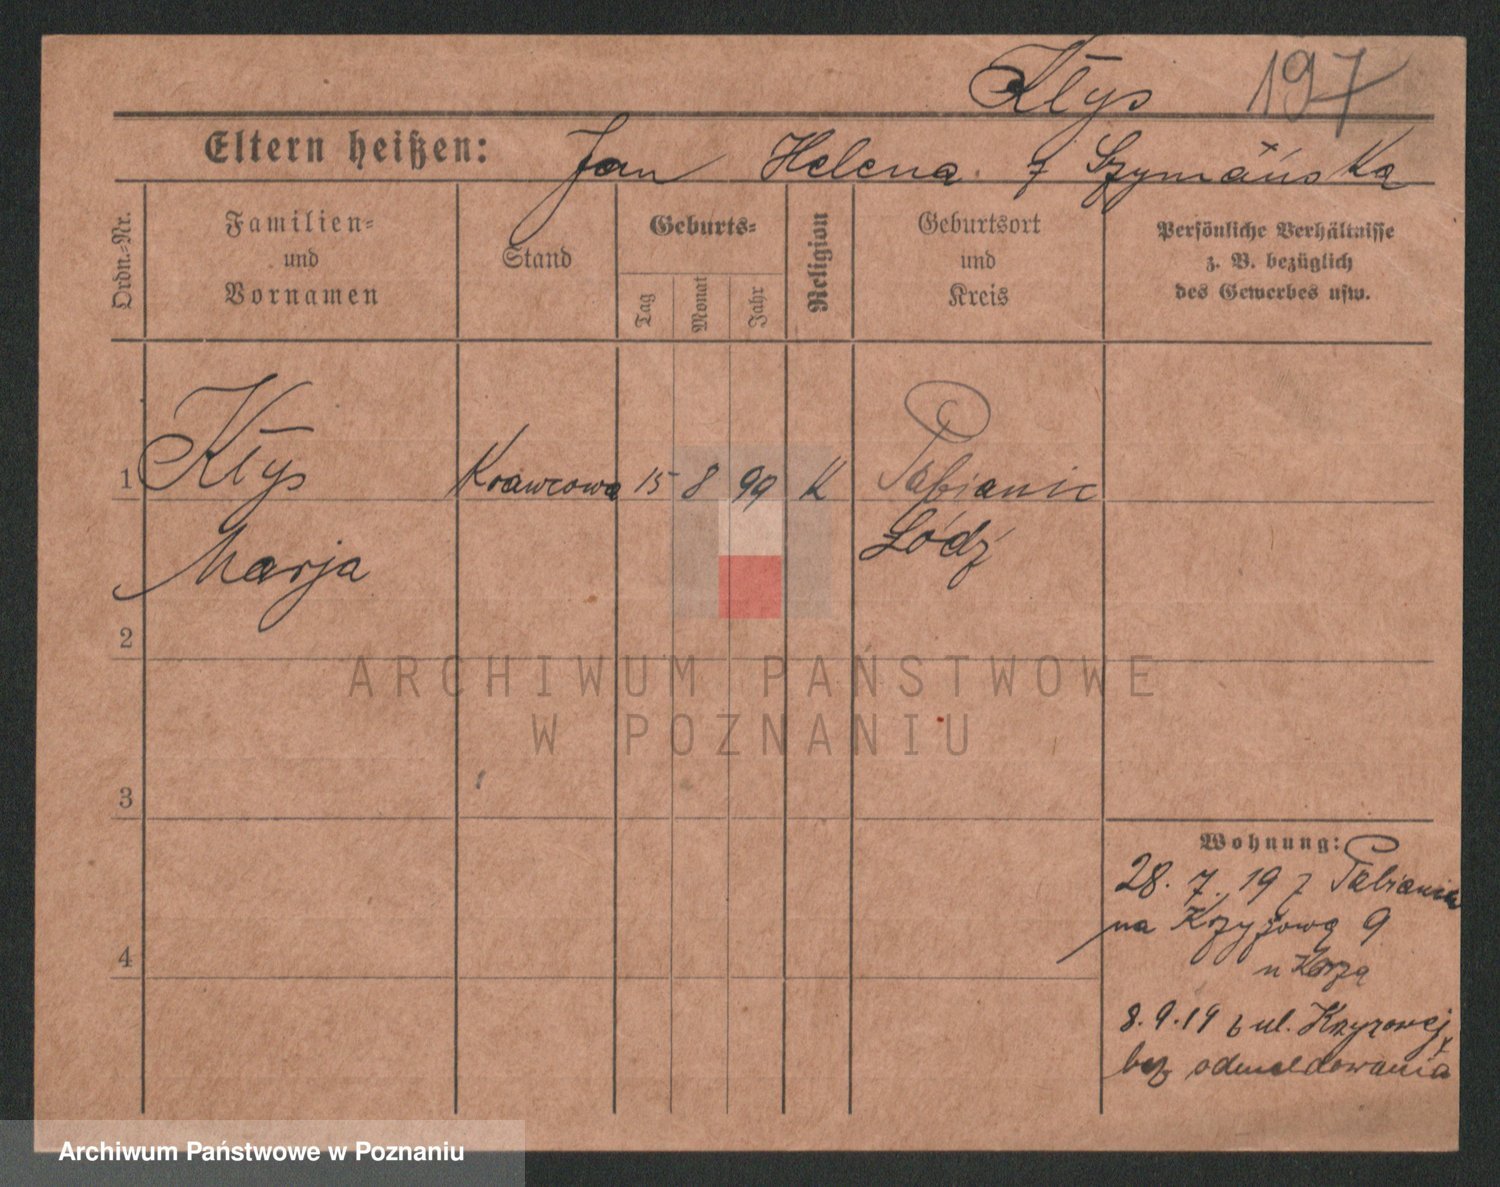 Kłys 197
Eltern heißen: Jan Helena z Szymańska
Ordn.-Nr.
Familien-
und
Vornamen
Stand
Geburts-
Tag
Monat
Jahr
Religion
Geburtsort
und
Kreis
Persönliche Verhältnisse
z. B. bezüglich
des Gewerbes usw.
1 Kłys Krawcowa 15 8 99 K Pabianic
Marja Łódź
2
3
4
Wohnung:
28. 7. 19 z Pabianic
na Krzyżową 9
u
8. 9. 19 z ul. Krzyzowej
bez odmeldowania
ARCHIWUM PAŃSTWOWE
W POZNANIU
Archiwum Państwowe w Poznaniu